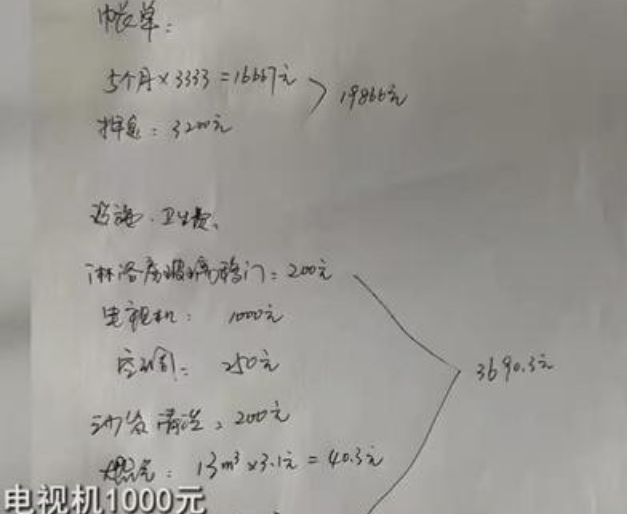 帐单:
5个月×3333=16667元
19866元
押金: 3200元
设施·卫生费、
淋浴房玻璃移门: 200元
电视机: 1000元
空调: 250元
沙发清洗: 200元
3690.3元
燃气: 13m³×3.1元=40.3元
电视机1000元